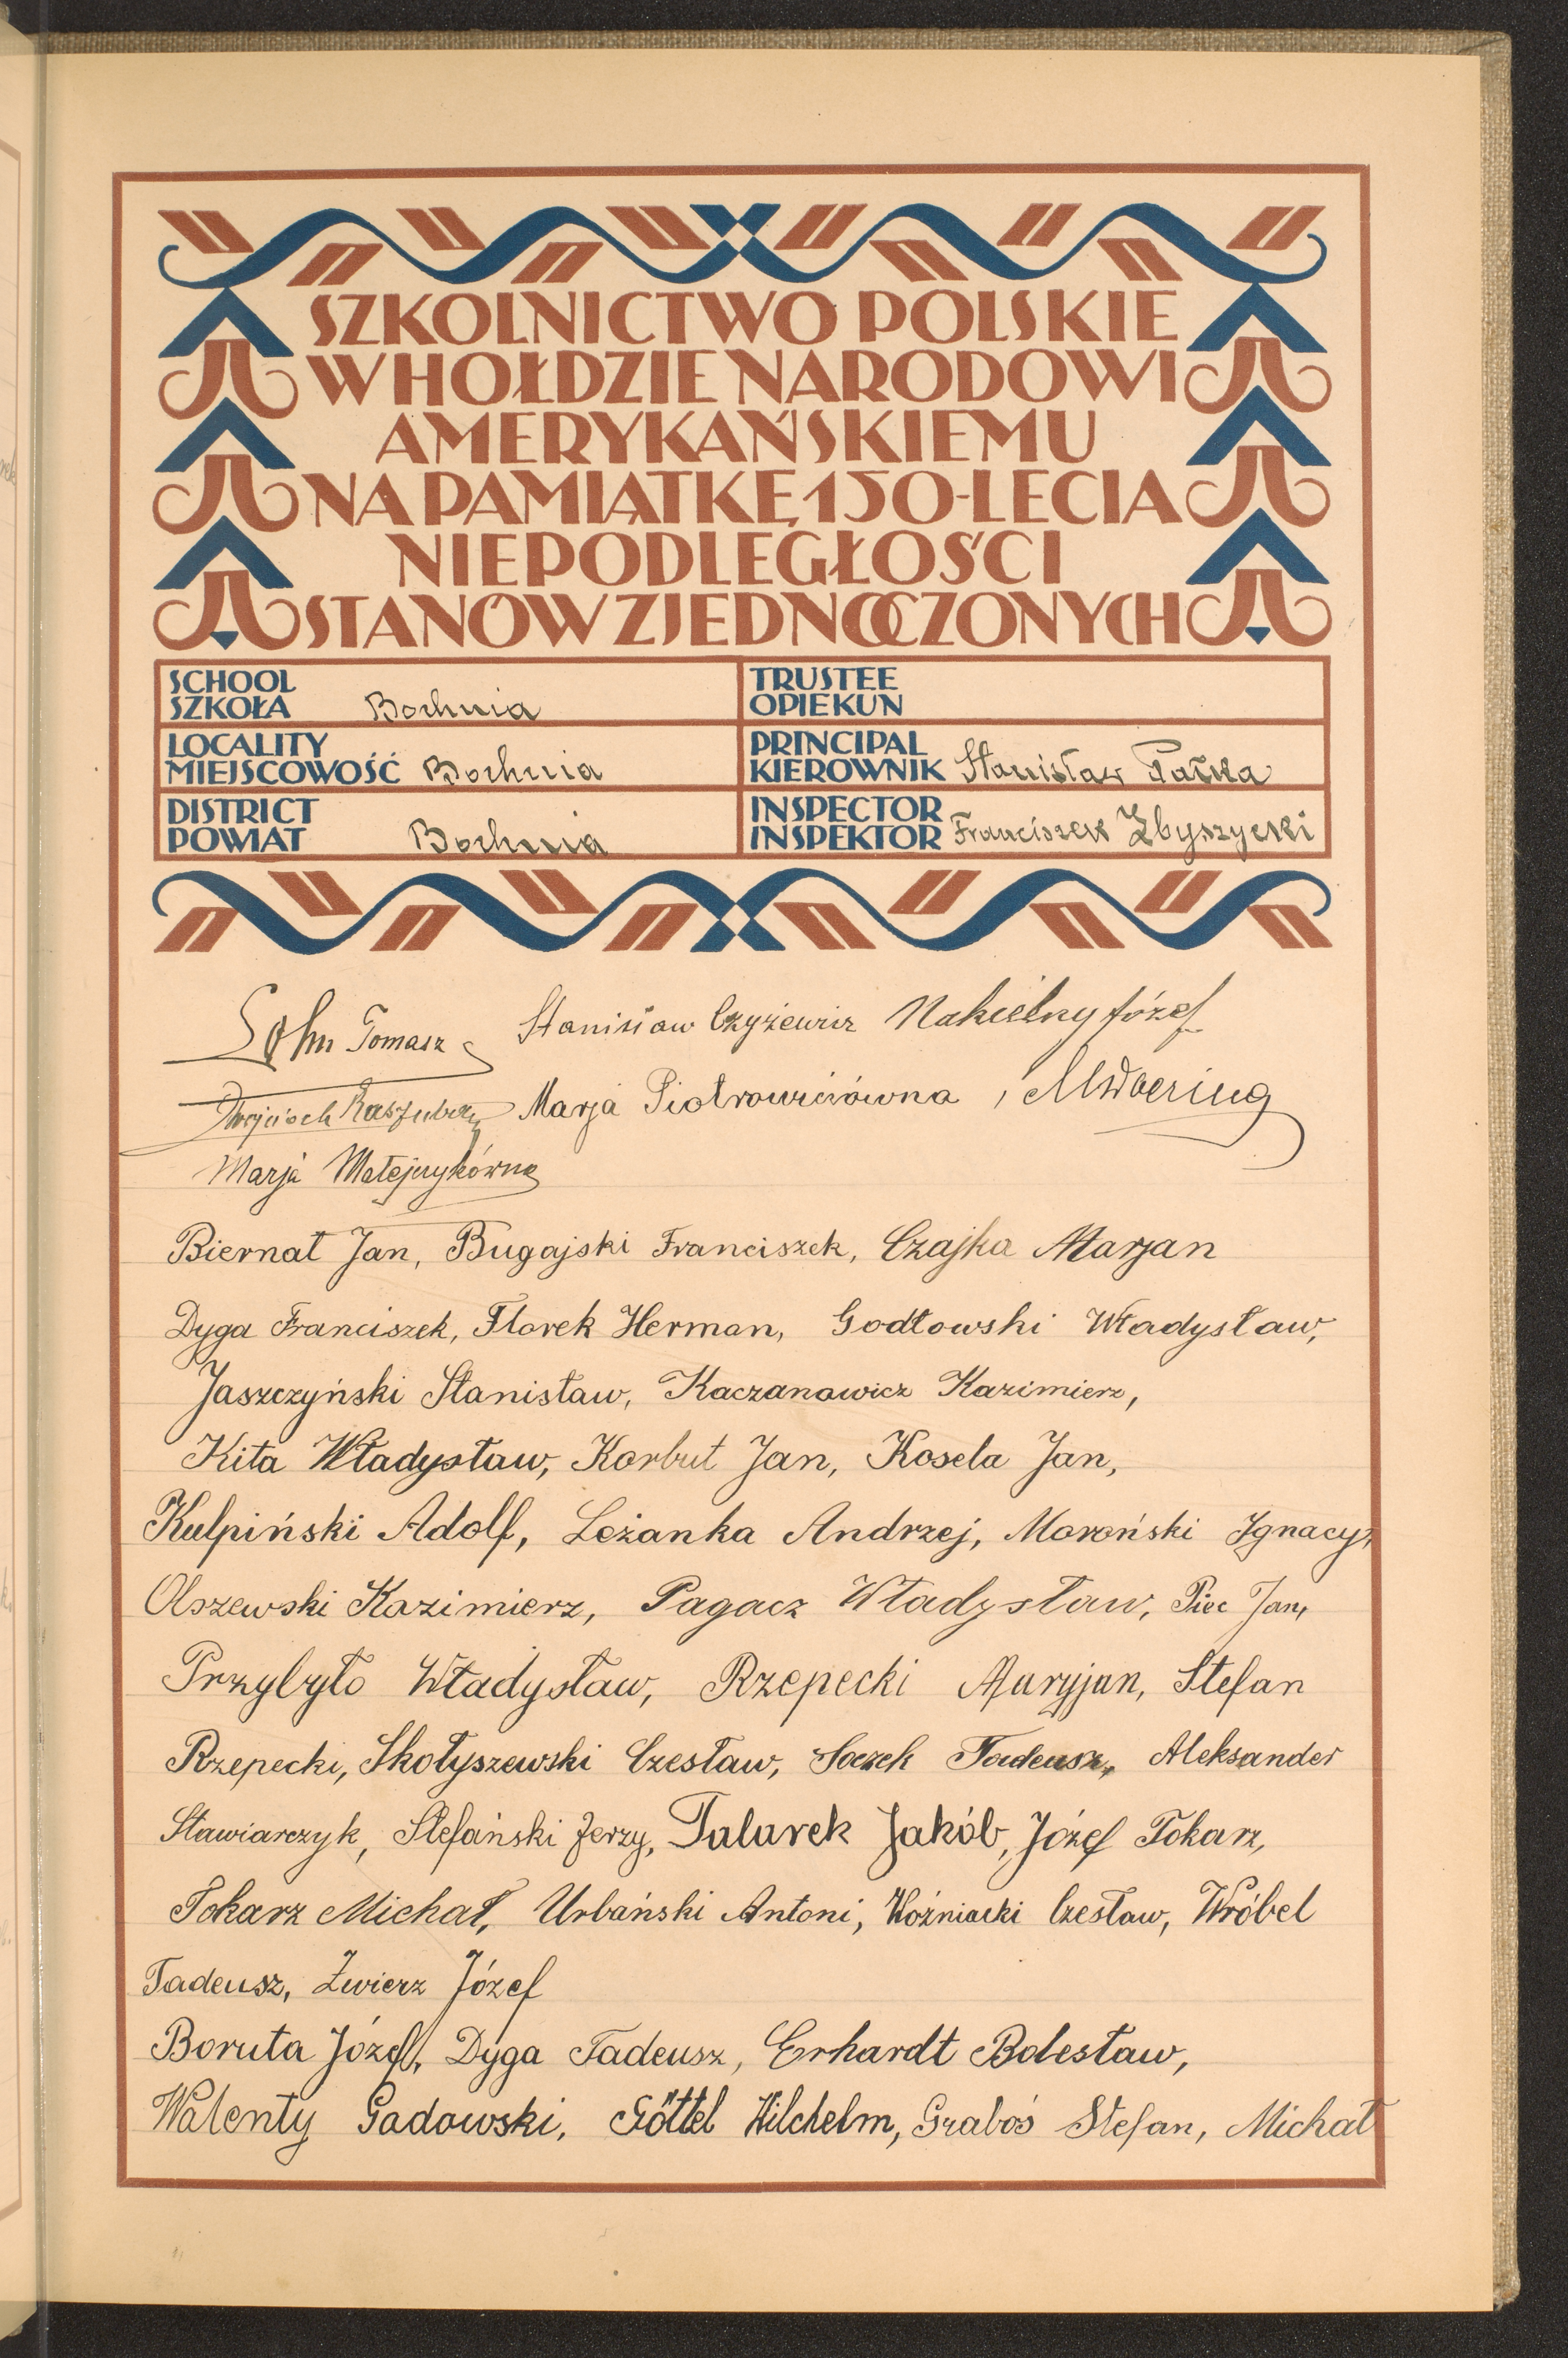 SZKOLNICTWO POLSKIE
W HOŁDZIE NARODOWI
AMERYKAŃSKIEMU
NA PAMIĄTKĘ 150-LECIA
NIEPODLEGŁOŚCI
STANÓW ZJEDNOCZONYCH
SCHOOL
SZKOŁA Bochnia
TRUSTEE
OPIEKUN
LOCALITY
MIEJSCOWOŚĆ Bochnia
PRINCIPAL
KIEROWNIK Stanisław Pałka
DISTRICT
POWIAT Bochnia
INSPECTOR
INSPEKTOR Franciszek Zbyszycki
Tomasz Stanisław Czyżewicz Nakielny Józef
Wojciech Marja Piotrowiczówna,
Marja Matejczykówna
Biernat Jan, Bugajski Franciszek, Czajka Marjan
Dyga Franciszek, Florek Herman, Godłowski Władysław,
Jaszczyński Stanisław, Kaczanowicz Kazimierz,
Kita Władysław, Korbut Jan, Kosela Jan,
Kulpiński Adolf, Leżanka Andrzej, Moroński Ignacy,
Olszewski Kazimierz, Pagacz Władysław, Piec Jan,
Przybyło Władysław, Rzepecki Maryjan, Stefan
Rzepecki, Skołyszewski Czesław, Soczek Tadeusz, Aleksander
Stawiarczyk, Stefański Jerzy, Talarek Jakób, Józef Tokarz,
Tokarz Michał, Urbański Antoni, Woźniacki Czesław, Wróbel
Tadeusz, Zwierz Józef
Boruta Józef, Dyga Tadeusz, Erhardt Bolesław,
Walenty Gadowski, Göttel Wilchelm, Graboś Stefan, Michał